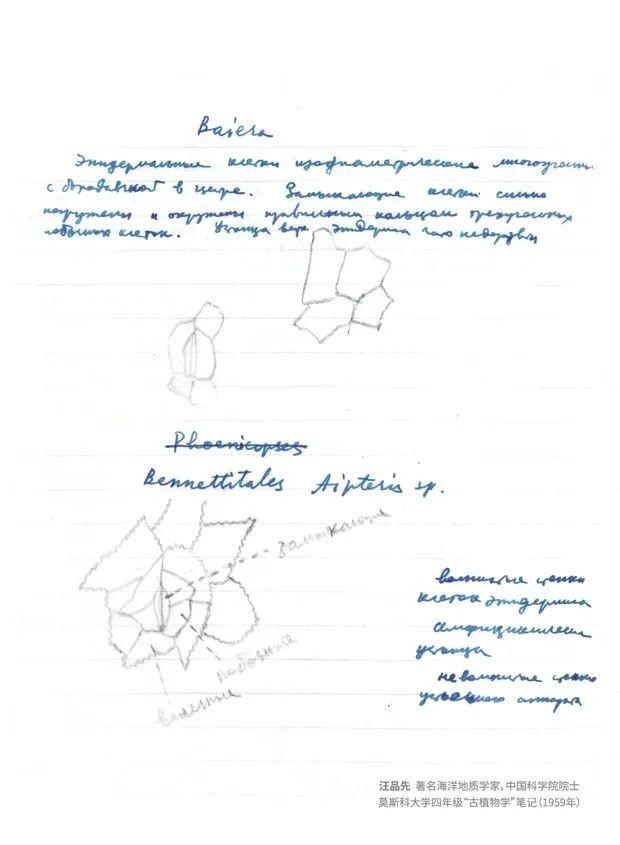 Baiera
Эпидермальные клетки изодиаметрические многоугольн
с бородавкой в центре. Замыкающие клетки сильно
погружены и окружены правильным кольцом треугольных
побочных клеток. Устьица верх. эпидермиса
Phoenicopses
Bennettitales Aipteris sp.
замыкающие
волнистые стенки
клеток эпидермиса
амфициклические
устьица
побочные
неволнистые стенки
устьичного аппарата
венечные
汪品先 著名海洋地质学家，中国科学院院士
莫斯科大学四年级“古植物学”笔记（1959年）